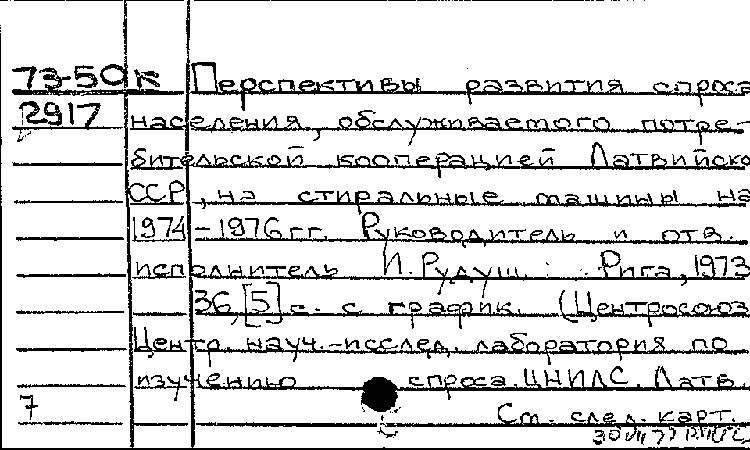 73-50к Перспективы развития спроса
2917 населения, обслуживаемого потре-
бительской кооперацией Латвийско
ССР, на стиральные машины на
1974-1976гг. Руководитель и отв.
исполнитель И. Рудуш. Рига, 1973
36, [5] с. с график. (Центросоюз
Центр. науч.-исслед. лаборатория по
изучению спроса. ЦНИЛС. Латв.
7 См. след. карт.